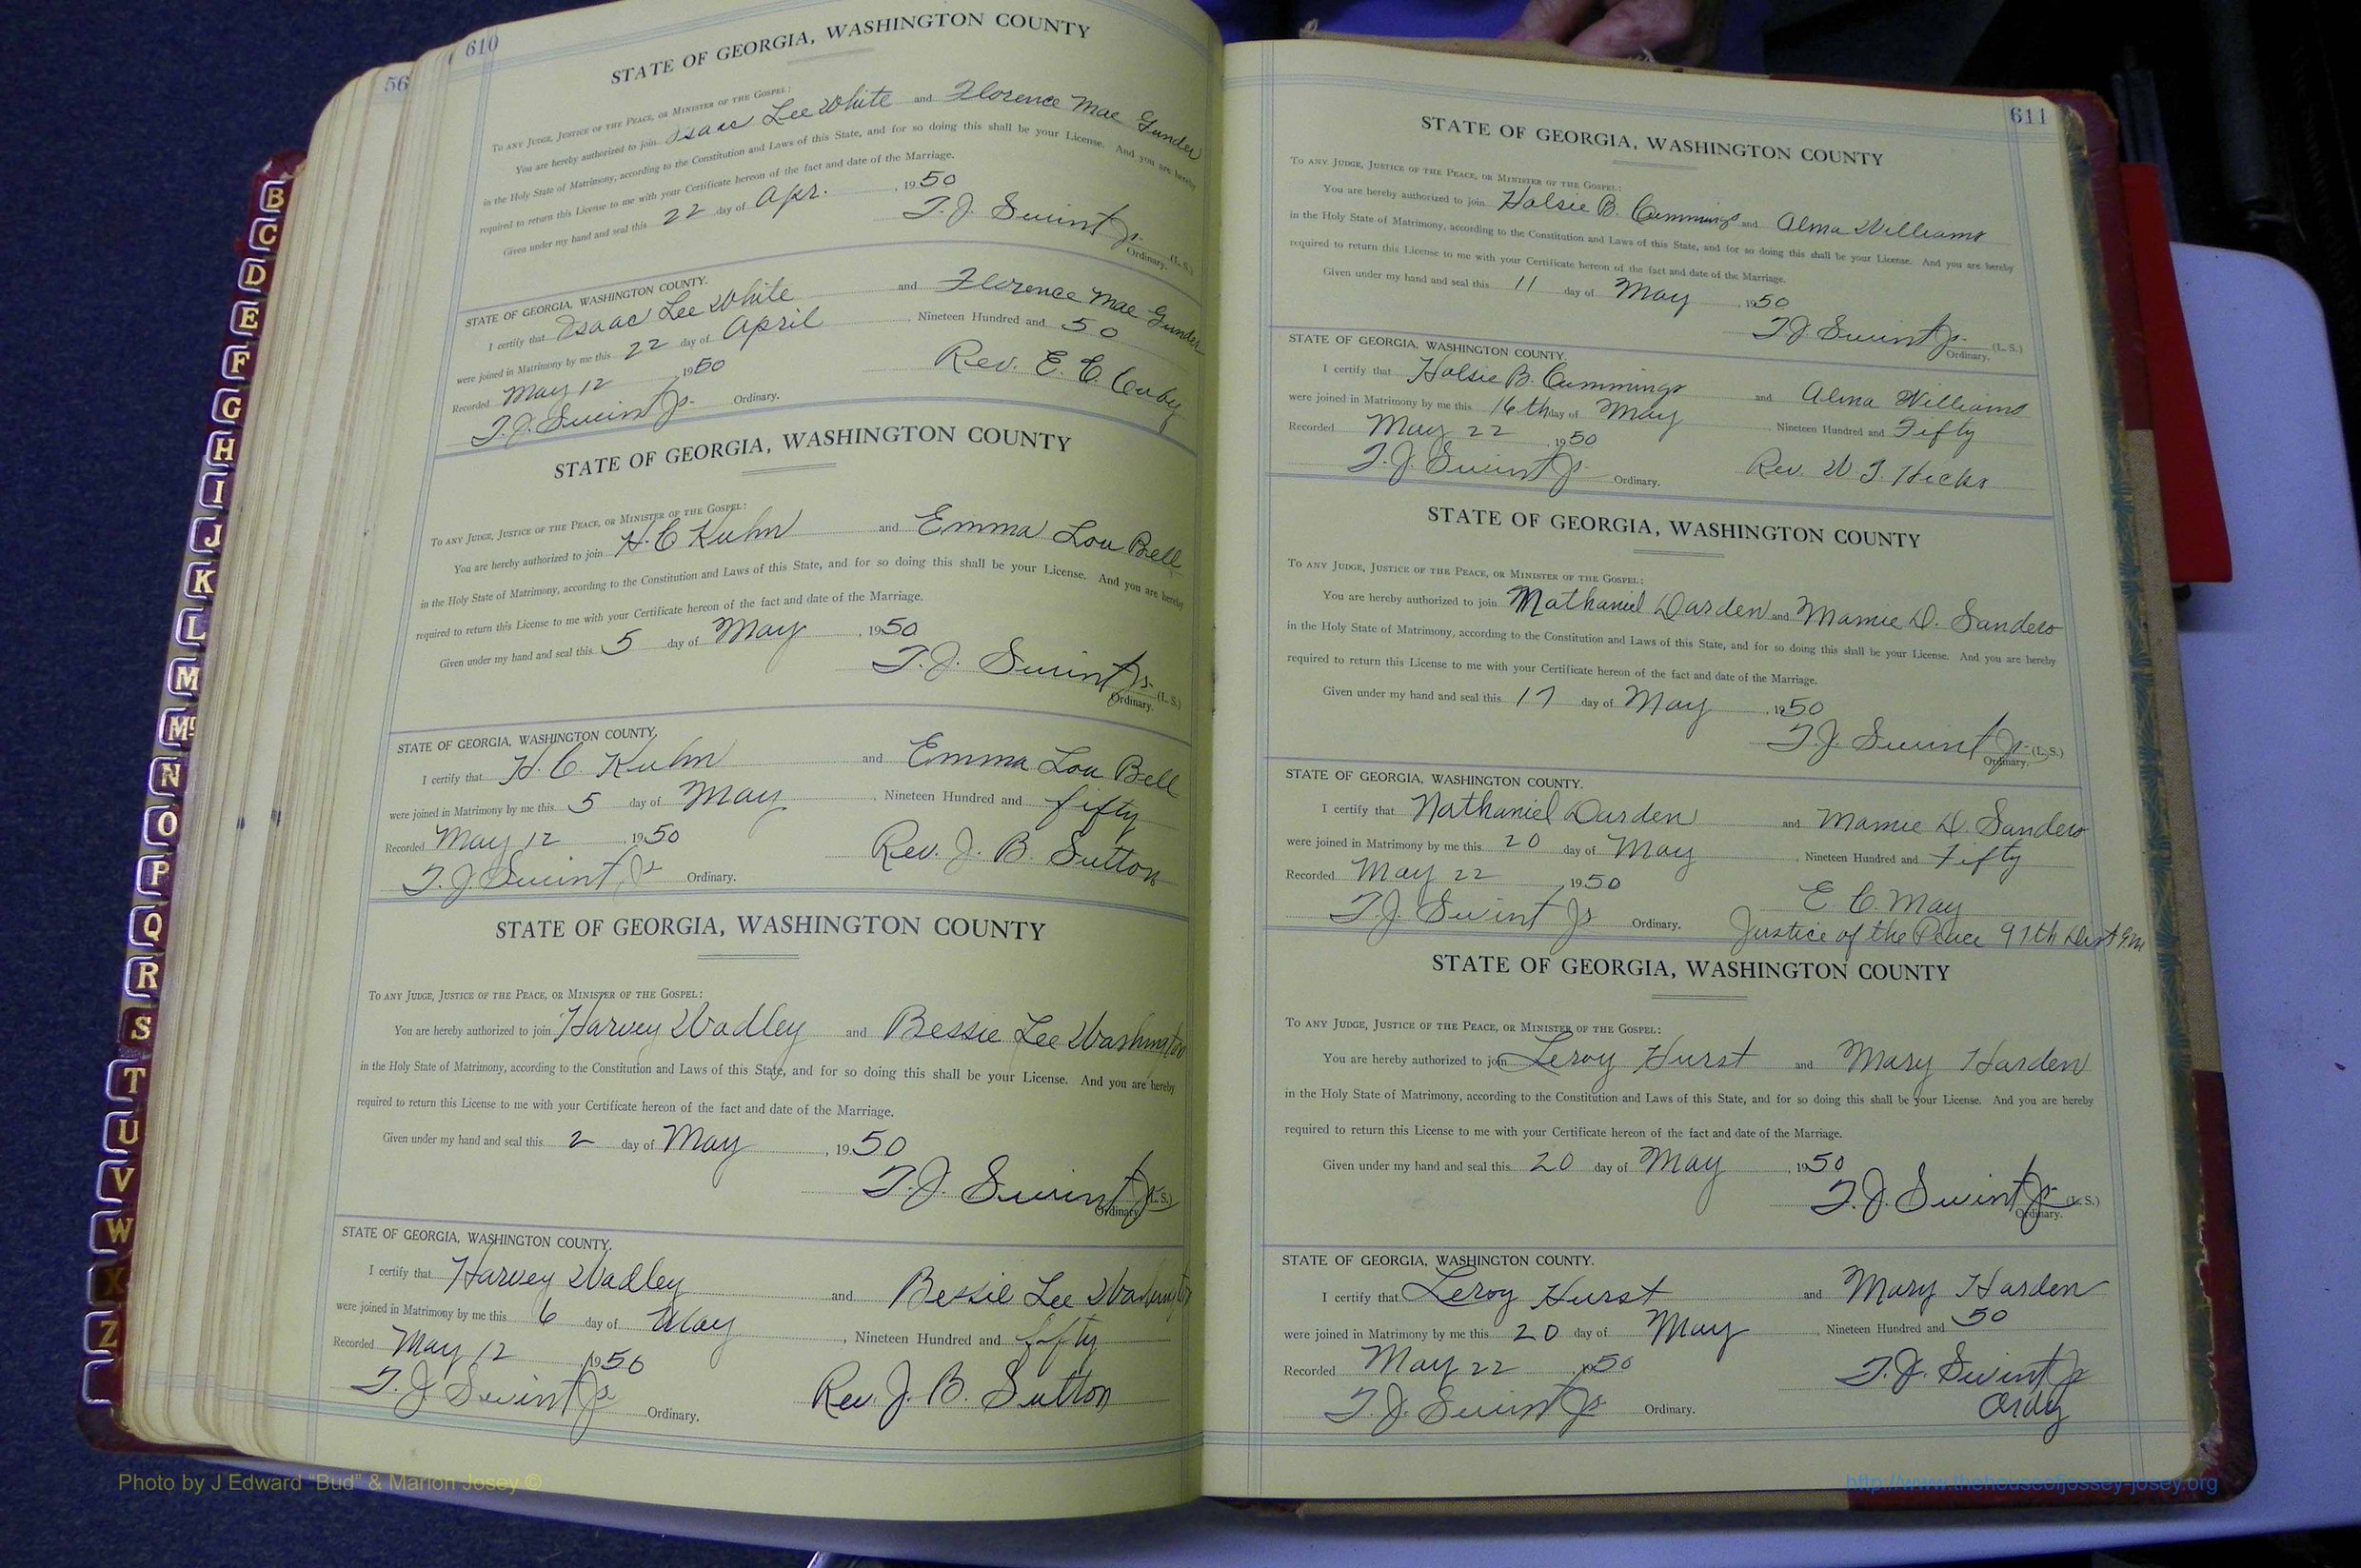 56
610
STATE OF GEORGIA, WASHINGTON COUNTY
To any Judge, Justice of the Peace, or Minister of the Gospel:
You are hereby authorized to join Isaac Lee White and Florence Mae Gunder
in the Holy State of Matrimony, according to the Constitution and Laws of this State, and for so doing this shall be your License. And you are hereby
required to return this License to me with your Certificate hereon of the fact and date of the Marriage.
Given under my hand and seal this 22 day of Apr. , 1950
T. J. Swint Jr. (L. S.)
Ordinary.
STATE OF GEORGIA, WASHINGTON COUNTY.
I certify that Isaac Lee White and Florence Mae Gunder
were joined in Matrimony by me this 22 day of April , Nineteen Hundred and 50
Recorded May 12 , 1950 Rev. E. C.
T. J. Swint Jr. Ordinary.
STATE OF GEORGIA, WASHINGTON COUNTY
To any Judge, Justice of the Peace, or Minister of the Gospel:
You are hereby authorized to join H. C Kuhn and Emma Lou Bell
in the Holy State of Matrimony, according to the Constitution and Laws of this State, and for so doing this shall be your License. And you are hereby
required to return this License to me with your Certificate hereon of the fact and date of the Marriage.
Given under my hand and seal this 5 day of May , 1950
T. J. Swint Jr. (L. S.)
Ordinary.
STATE OF GEORGIA, WASHINGTON COUNTY.
I certify that H. C. Kuhn and Emma Lou Bell
were joined in Matrimony by me this 5 day of May , Nineteen Hundred and fifty
Recorded May 12 , 1950 Rev. J. B. Sutton
T. J. Swint Jr Ordinary.
STATE OF GEORGIA, WASHINGTON COUNTY
To any Judge, Justice of the Peace, or Minister of the Gospel:
You are hereby authorized to join Harvey Wadley and Bessie Lee Washington
in the Holy State of Matrimony, according to the Constitution and Laws of this State, and for so doing this shall be your License. And you are hereby
required to return this License to me with your Certificate hereon of the fact and date of the Marriage.
Given under my hand and seal this 2 day of May , 1950
T. J. Swint Jr (L. S.)
Ordinary.
STATE OF GEORGIA, WASHINGTON COUNTY.
I certify that Harvey Wadley and Bessie Lee Washington
were joined in Matrimony by me this 6 day of May , Nineteen Hundred and fifty
Recorded May 12 , 1950
T. J Swint Jr Ordinary. Rev. J. B. Sutton
611
STATE OF GEORGIA, WASHINGTON COUNTY
To any Judge, Justice of the Peace, or Minister of the Gospel:
You are hereby authorized to join Halsie B. Cummings and Alma Williams
in the Holy State of Matrimony, according to the Constitution and Laws of this State, and for so doing this shall be your License. And you are hereby
required to return this License to me with your Certificate hereon of the fact and date of the Marriage.
Given under my hand and seal this 11 day of May , 1950
T. J. Swint Jr. (L. S.)
Ordinary.
STATE OF GEORGIA, WASHINGTON COUNTY.
I certify that Halsie B. Cummings and Alma Williams
were joined in Matrimony by me this 16th day of May , Nineteen Hundred and Fifty
Recorded May 22 , 1950
T. J. Swint Jr. Ordinary. Rev. W. J. Hicks
STATE OF GEORGIA, WASHINGTON COUNTY
To any Judge, Justice of the Peace, or Minister of the Gospel:
You are hereby authorized to join Nathaniel Darden and Mamie D. Sanders
in the Holy State of Matrimony, according to the Constitution and Laws of this State, and for so doing this shall be your License. And you are hereby
required to return this License to me with your Certificate hereon of the fact and date of the Marriage.
Given under my hand and seal this 17 day of May , 1950
T. J. Swint Jr. (L. S.)
Ordinary.
STATE OF GEORGIA, WASHINGTON COUNTY.
I certify that Nathaniel Darden and Mamie D. Sanders
were joined in Matrimony by me this 20 day of May , Nineteen Hundred and Fifty
Recorded May 22 , 1950 E. C. May
T. J. Swint Jr Ordinary. Justice of the Peace 97th Dist G.M
STATE OF GEORGIA, WASHINGTON COUNTY
To any Judge, Justice of the Peace, or Minister of the Gospel:
You are hereby authorized to join Leroy Hurst and Mary Harden
in the Holy State of Matrimony, according to the Constitution and Laws of this State, and for so doing this shall be your License. And you are hereby
required to return this License to me with your Certificate hereon of the fact and date of the Marriage.
Given under my hand and seal this 20 day of May , 1950
T. J. Swint Jr. (L. S.)
Ordinary.
STATE OF GEORGIA, WASHINGTON COUNTY.
I certify that Leroy Hurst and Mary Harden
were joined in Matrimony by me this 20 day of May , Nineteen Hundred and 50
Recorded May 22 , 1950 T. J. Swint Jr
T. J. Swint Jr. Ordinary. Ordy
B
C
D
E
F
G
H
I
J
K
L
M
Mc
N
O
P
Q
R
S
T
U
V
W
X
Z
Photo by J Edward “Bud” & Marion Josey ©
http://www.thehouseofjossey-josey.org